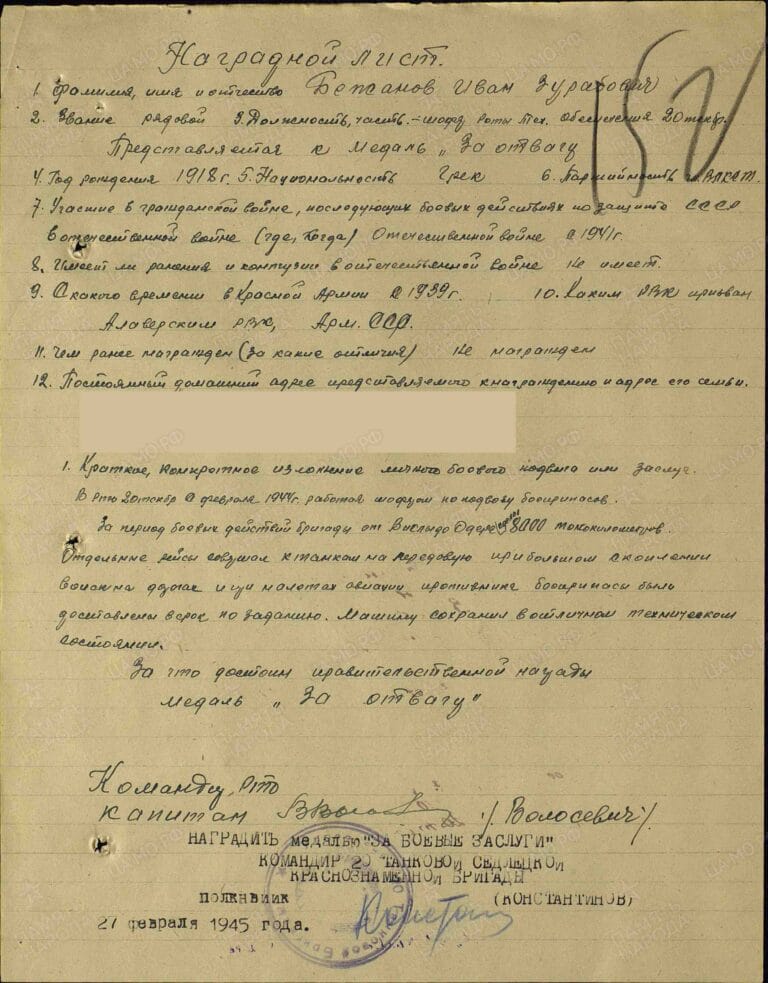 Наградной лист.
1. Фамилия, имя и отчество Бежанов Иван Зурабович
2. Звание рядовой 3. Должность, часть. – шофер роты тех. обеспечения 20 тбр.
Представляется к медаль „За отвагу
4. Год рождения 1918 г. 5. Национальность Грек 6. Партийность ВЛКСМ.
7. Участие в гражданской войне, последующих боевых действиях по защите СССР
в отечественной войне (где, когда) Отечественной войне с 1941 г.
8. Имеет ли ранения и контузии в отечественной войне Не имеет.
9. С какого времени в Красной Армии с 1939 г. 10. Каким РВК призван
Алаверским РВК, Арм. ССР.
11. Чем ранее награжден (за какие отличия) Не награжден
12. Постоянный домашний адрес представляемого к награждению и адрес его семьи.
1. Краткое, конкретное изложение личного боевого подвига или заслуг.
В РТО 20 тбр с февраля 1944 г. работая шофером по подвозу боеприпасов.
За период боевых действий бригады от Вислы до Одера 8000 тонокилометров.
Отдельные рейсы совершал к танкам на передовую при большом скоплении
войск на дорогах и при налетах авиации противника боеприпасы были
доставлены в срок по заданию. Машину сохранил в отличном техническом
состоянии.
За что достоин правительственной награды
медаль „За отвагу"
Командир РТО
капитан /Волосевич/.
НАГРАДИТЬ медалью "ЗА БОЕВЫЕ ЗАСЛУГИ"
КОМАНДИР 20 ТАНКОВОЙ СЕДЛЕЦКОЙ
КРАСНОЗНАМЕННОЙ БРИГАДЫ
полковник (КОНСТАНТИНОВ)
27 февраля 1945 года.